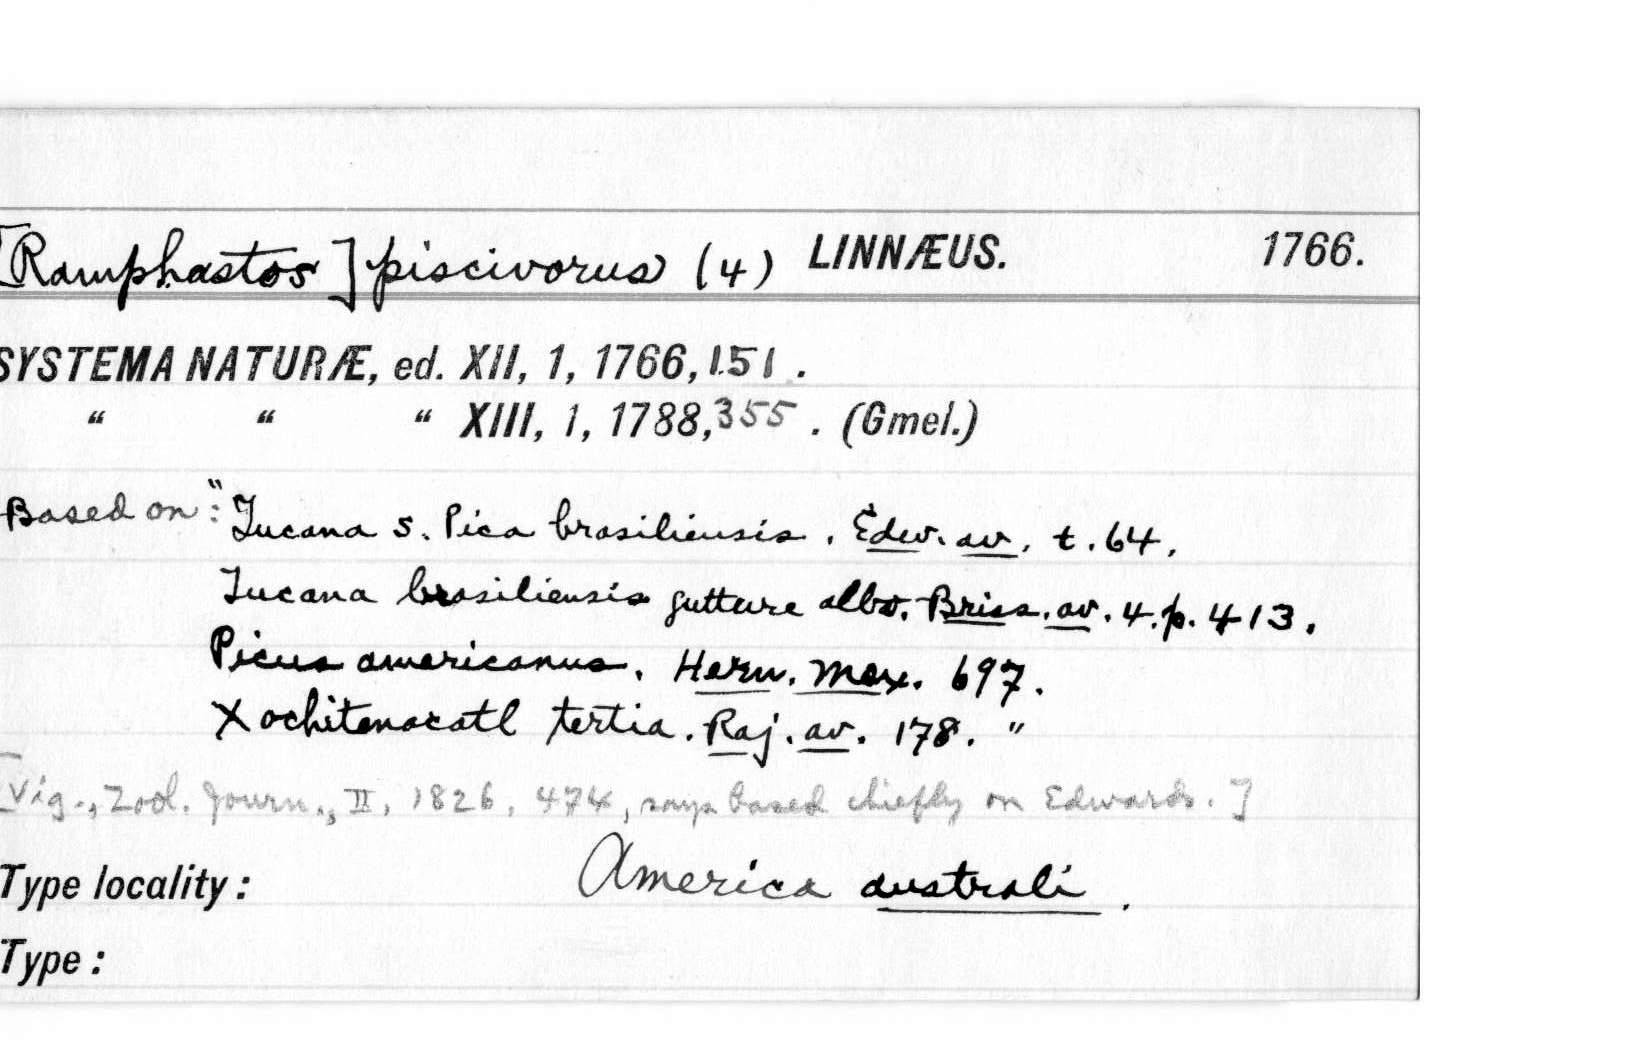 [Ramphastos] piscivorus (4) LINNÆUS. 1766.
SYSTEMA NATURÆ, ed. XII, 1, 1766, 151.
" " " XIII, 1, 1788, 355. (Gmel.)
Based on: "Tucana s. Pica brasiliensis. Edw. av. t. 64.
Tucana brasiliensis gutture albo. Briss. av. 4. p. 413.
Picus americanus. Hern. mex. 697.
Xochitenacatl tertia. Raj. av. 178. "
[Vig., Zool. Journ., II, 1826, 474, says based chiefly on Edwards.]
Type locality: America australi.
Type: